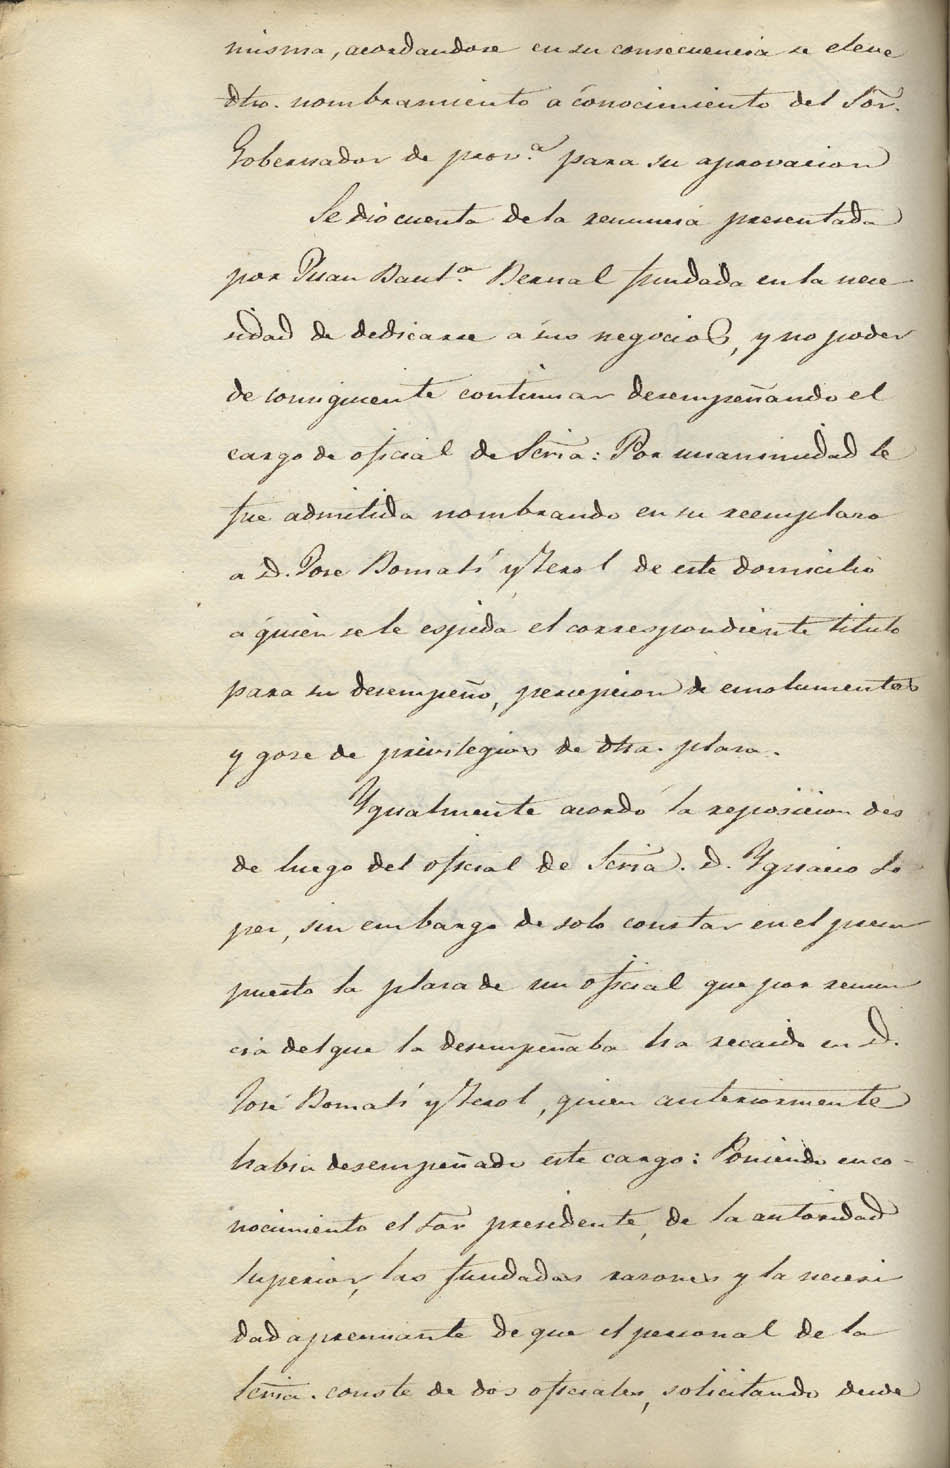 misma, acordandose en su consecuencia se eleve
dho. nombramiento a conocimiento del Sor.
Gobernador de prov.ª para su aprovacion
Se dio cuenta de la renuncia presentada
por Juan Baut.ª Bernal fundada en la nece
sidad de dedicarse a sus negocios, y no poder
de consiguiente continuar desempeñando el
cargo de oficial de Sria: Por unanimidad le
fue admitida nombrando en su reemplazo
a D. Jose Bomati y Terol de este domicilio
a quien se le espida el correspondiente titulo
para su desempeño, percepcion de emolumentos
y gose de privilegios de dha. plasa.
Ygualmente acordó la reposicion des
de luego del oficial de Sria. D. Ygnacio Lo
pez, sin embargo de solo constar en el presu
puesto la plasa de un oficial que por renun
cia del que la desempeñaba ha recaido en D.
José Bomati y Terol, quien anteriormente
habia desempeñado este cargo: Poniendo en co-
nocimiento el Sor presidente, de la autoridad
Superior, las fundadas rasones y la necesi
dad apremiante de que el personal de la
Sria. conste de dos oficiales, solicitando desde